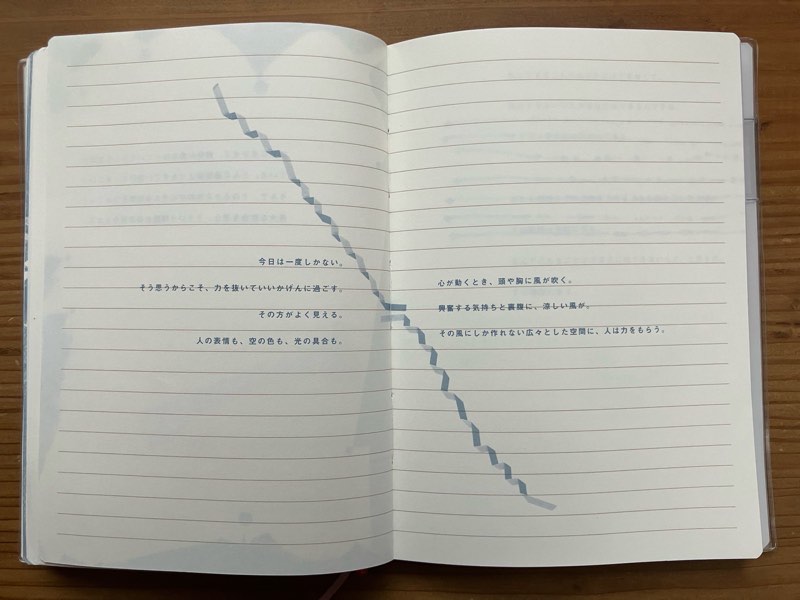 今日は一度しかない。
そう思うからこそ、力を抜いていいかげんに過ごす。
その方がよく見える。
人の表情も、空の色も、光の具合も。
心が動くとき、頭や胸に風が吹く。
興奮する気持ちと裏腹に、涼しい風が。
その風にしか作れない広々とした空間に、人は力をもらう。